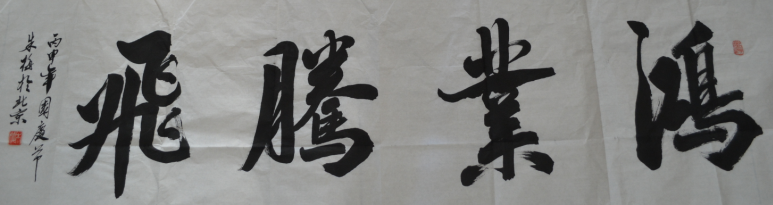 鴻業騰飛
丙申年國慶節
朱拉於北京